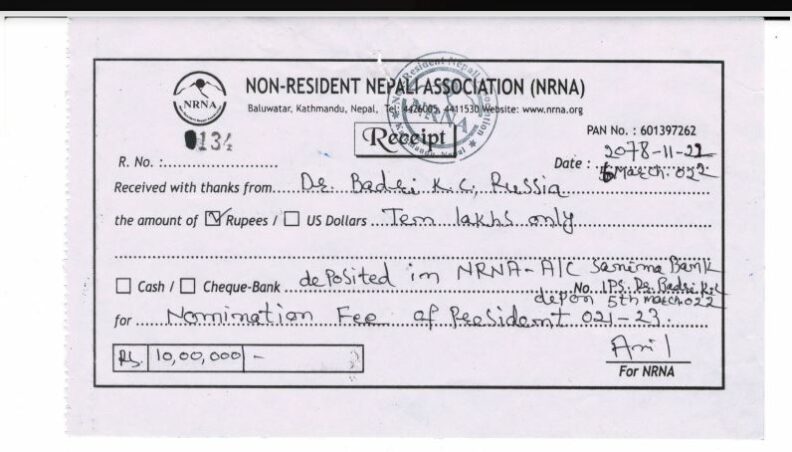 NON-RESIDENT NEPALI ASSOCIATION (NRNA)
Baluwatar, Kathmandu, Nepal, Tel: 4426005, 4411530 Website: www.nrna.org
NRNA
Receipt
PAN No. : 601397262
0134
R. No. :
Date : 2078-11-22
6 March. 022
Received with thanks from Dr. Badri K.C, Russia
the amount of ☑ Rupees / ☐ US Dollars Tem lakhs only
☐ Cash / ☐ Cheque-Bank deposited in NRNA-A/C Sanima Bank
No. IPS. Dr. Badri K.C
5th March. 022
for Nomination Fee of President 021-23.
Rs. 10,00,000/-
Anil
For NRNA